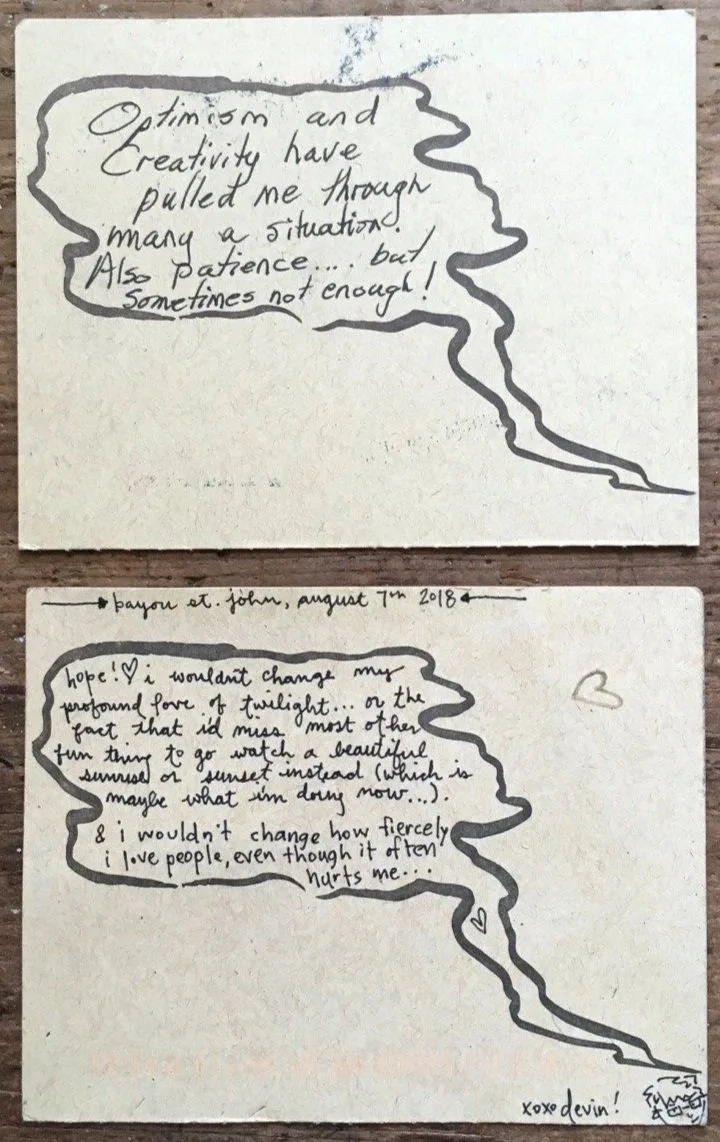 Optimism and
Creativity have
pulled me through
many a situation.
Also patience.... but
Sometimes not enough!
bayou st. john, august 7th 2018
hope!♡ i wouldn't change my
profound love of twilight... or the
fact that i'd miss most other
fun thing to go watch a beautiful
sunrise or sunset instead (which is
maybe what i'm doing now...).
& i wouldn't change how fiercely
i love people, even though it often
hurts me...
xoxo devin!